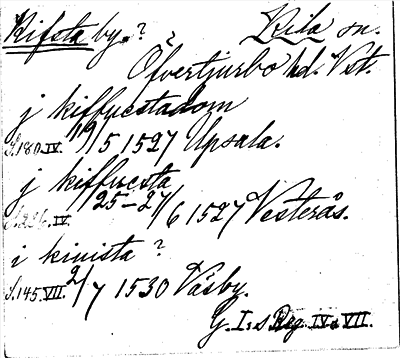 Kifsta by.? ? Kila sn.
Öfvertjurbo hd. Vst.
j kiffwestadom
S.180.IV. 19/5 1527 Upsala.
j kiffwesta
S.226.IV. 25-27/6 1527 Vesterås.
i kinista ?
S.145.VII. 2/7 1530 Väsby.
G. I:s Reg. IV o VII.